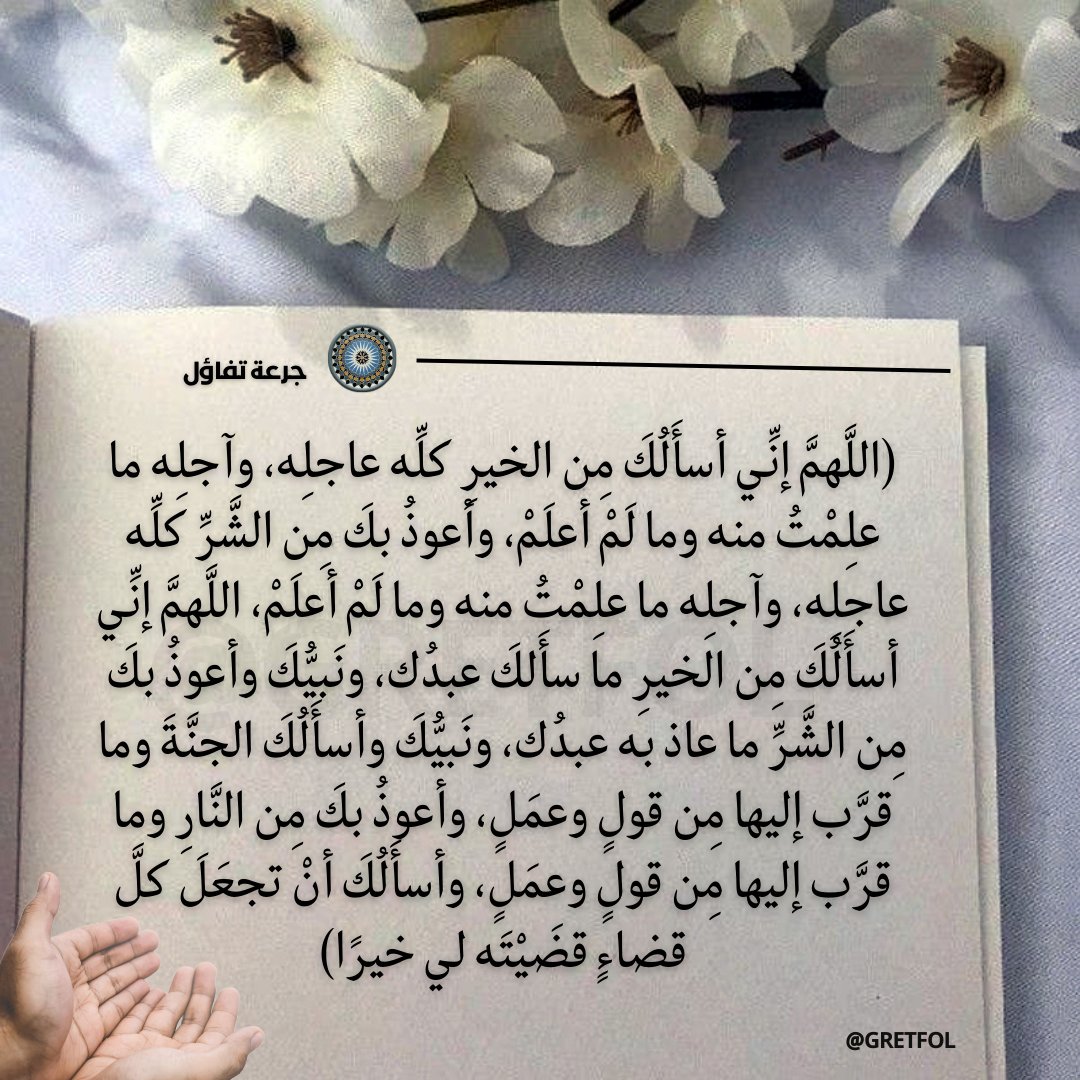 جرعة تفاؤل
(اللَّهمَّ إنِّي أسأَلُكَ مِن الخيرِ كلِّه عاجلِه، وآجلِه ما
علِمْتُ منه وما لَمْ أعلَمْ، وأعوذُ بكَ مِن الشَّرِّ كلِّه
عاجلِه، وآجلِه ما علِمْتُ منه وما لَمْ أعلَمْ، اللَّهمَّ إنِّي
أسأَلُكَ مِن الخيرِ ما سأَلكَ عبدُك، ونَبيُّكَ وأعوذُ بكَ
مِن الشَّرِّ ما عاذ به عبدُك، ونَبيُّكَ وأسأَلُكَ الجنَّةَ وما
قرَّب إليها مِن قولٍ وعمَلٍ، وأعوذُ بكَ مِن النَّارِ وما
قرَّب إليها مِن قولٍ وعمَلٍ، وأسأَلُكَ أنْ تجعَلَ كلَّ
قضاءٍ قضَيْتَه لي خيرًا)
@GRETFOL